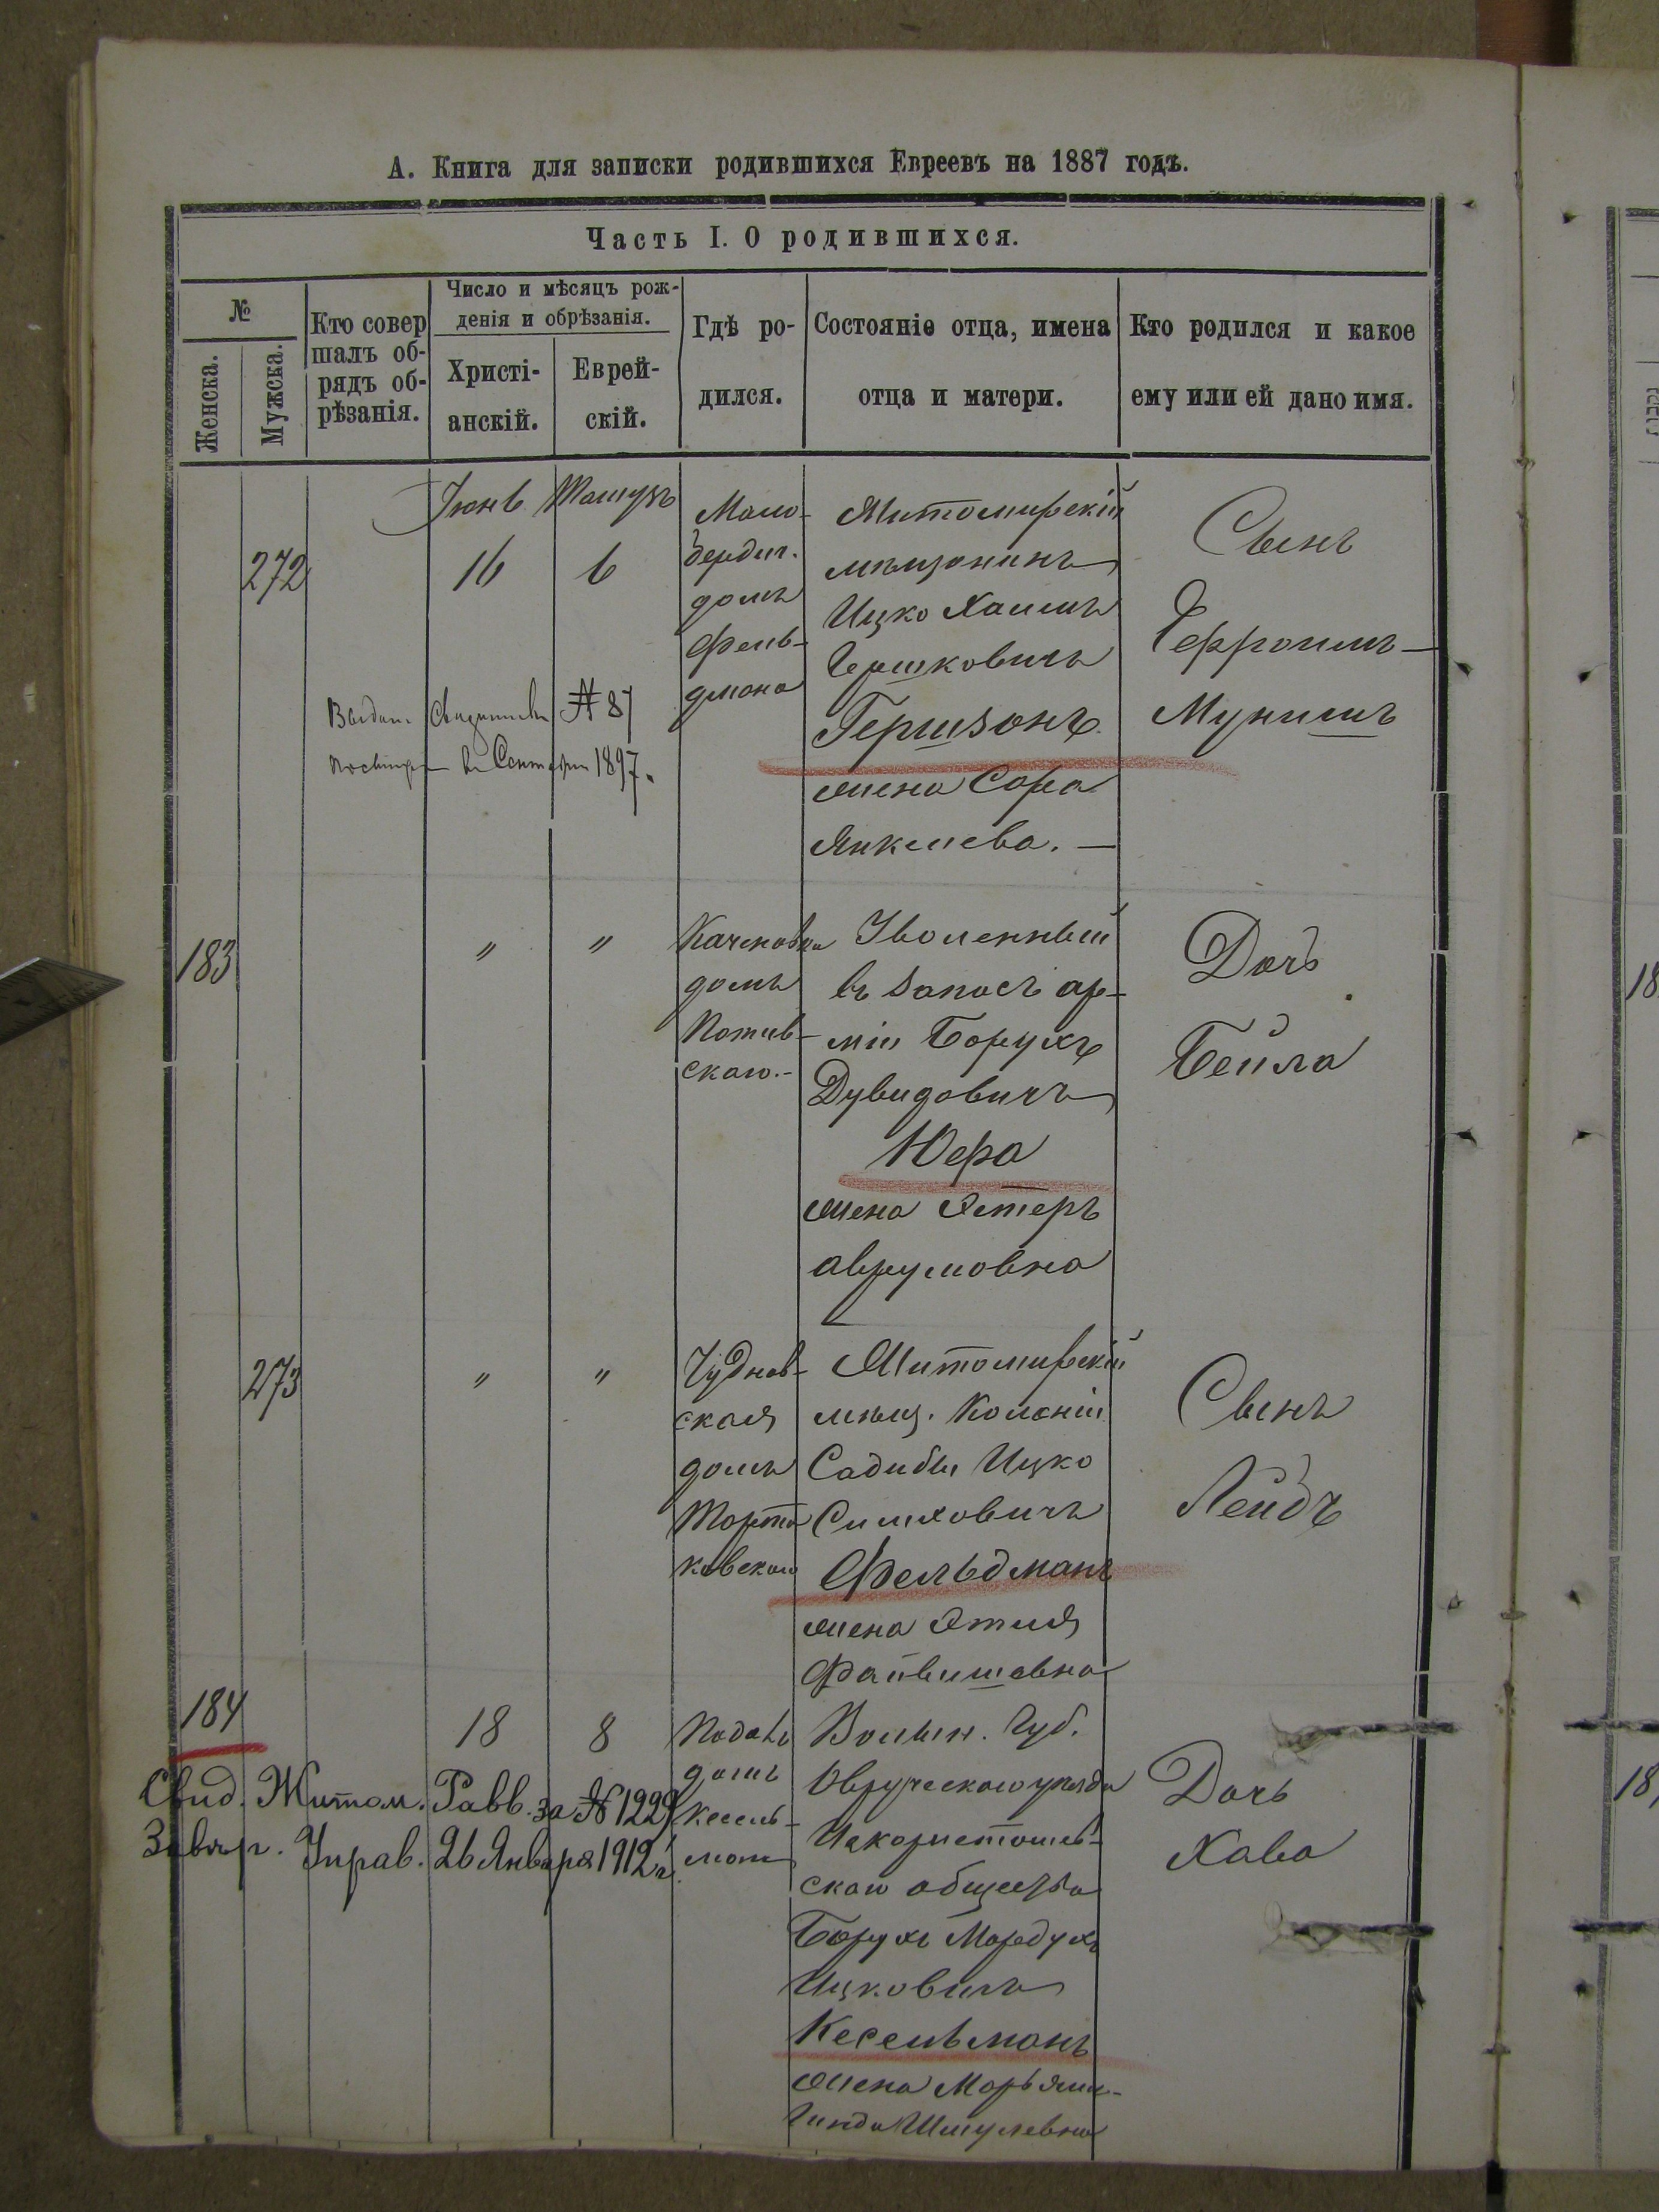 А. Книга для записки родившихся Евреевъ на 1887 годъ.
Часть I. О родившихся.
№
Женска.
Мужска.
Кто совер
шалъ об-
рядъ об-
рѣзанія.
Число и мѣсяцъ рож-
денія и обрѣзанія.
Христі-
анскій.
Еврей-
скій.
Гдѣ ро-
дился.
Состояніе отца, имена
отца и матери.
Кто родился и какое
ему или ей дано имя.
272
Іюнь
16
Тамузъ
6
Мало-
бердич.
домъ
Фель-
дмана
Житомирскій
мѣщанинъ
Ицко Хаимъ
Гершковичъ
Гершзонъ
жена Сора
Янкелева. —
Сынъ
Ефроимъ-
Мунишъ
№ 87
в Сентября 1897
183
"
"
Каченовка
домъ
скаго.-
Уволенный
въ запасъ ар-
міи Борухъ
Дувидовичъ
Юфа
жена Эстеръ
Аврумовна
Дочь
Бейла
273
"
"
Чуднов-
ская
домъ
Торта
ковскаго
Житомирскій
мѣщ. Колоніи
Садибы Ицко
Симховичъ
Фельдманъ
жена Этля
Файвишевна
Сынъ
Лейбъ
184
18
8
домъ
Кесель-
ман
Волын. Губ.
Овручскаго уѣзда
Искоростышев-
скаго общества
Борухъ Мордухъ
Ицковичъ
Кесельманъ
жена Марьям-
Гинда Шмулевна
Дочь
Хава
Свид. Житом. Равв. за № 1229
Завѣр. Управ. 26 Января 1912 г.
18
18